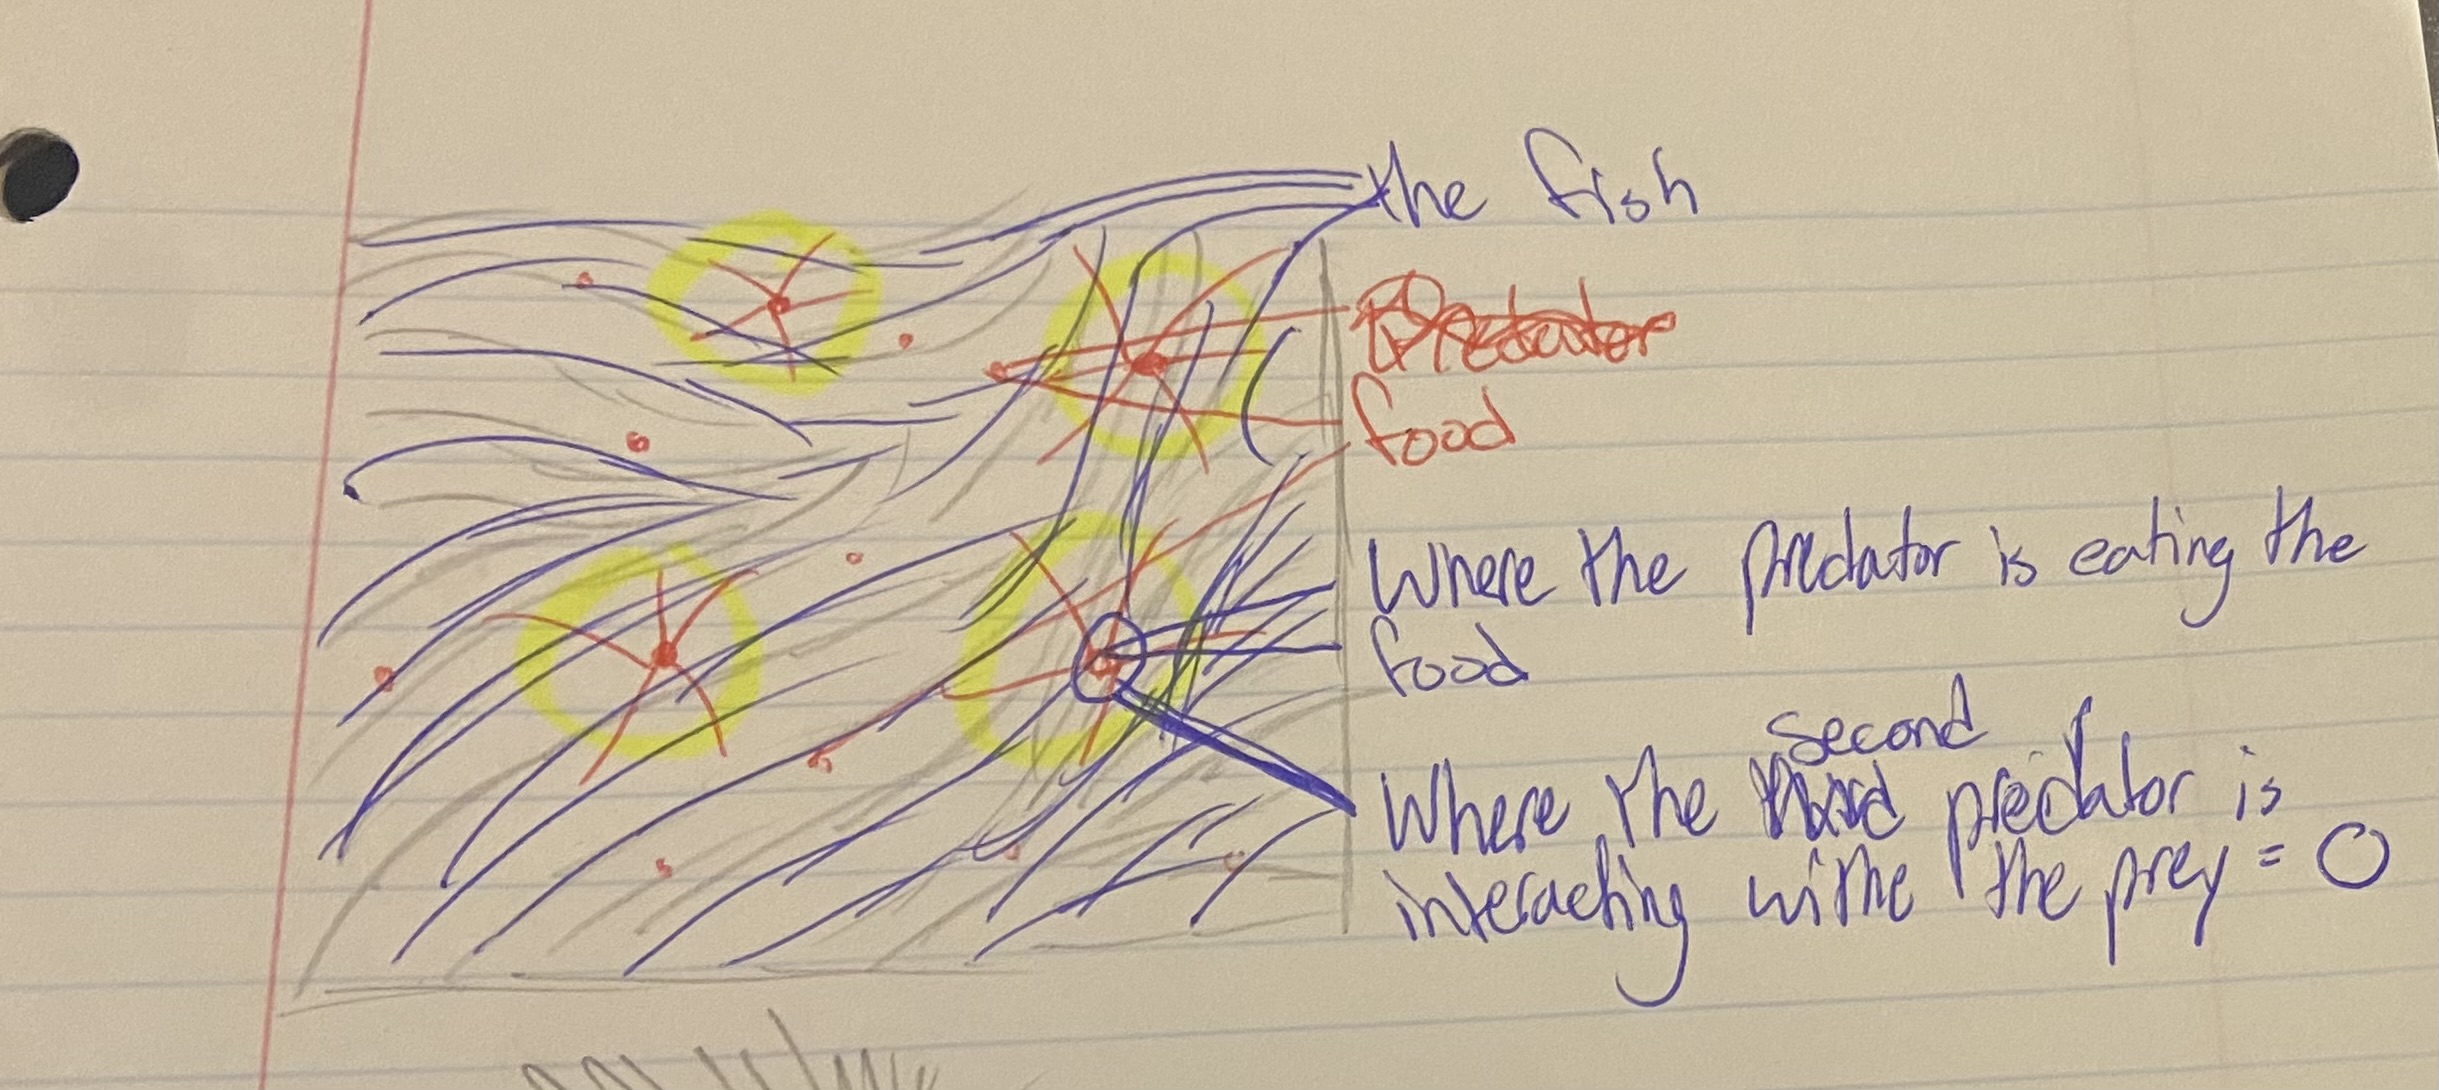 the fish
Predator
food
Where the predator is eating the
food
second
Where the third predator is
interacting withe the prey = O